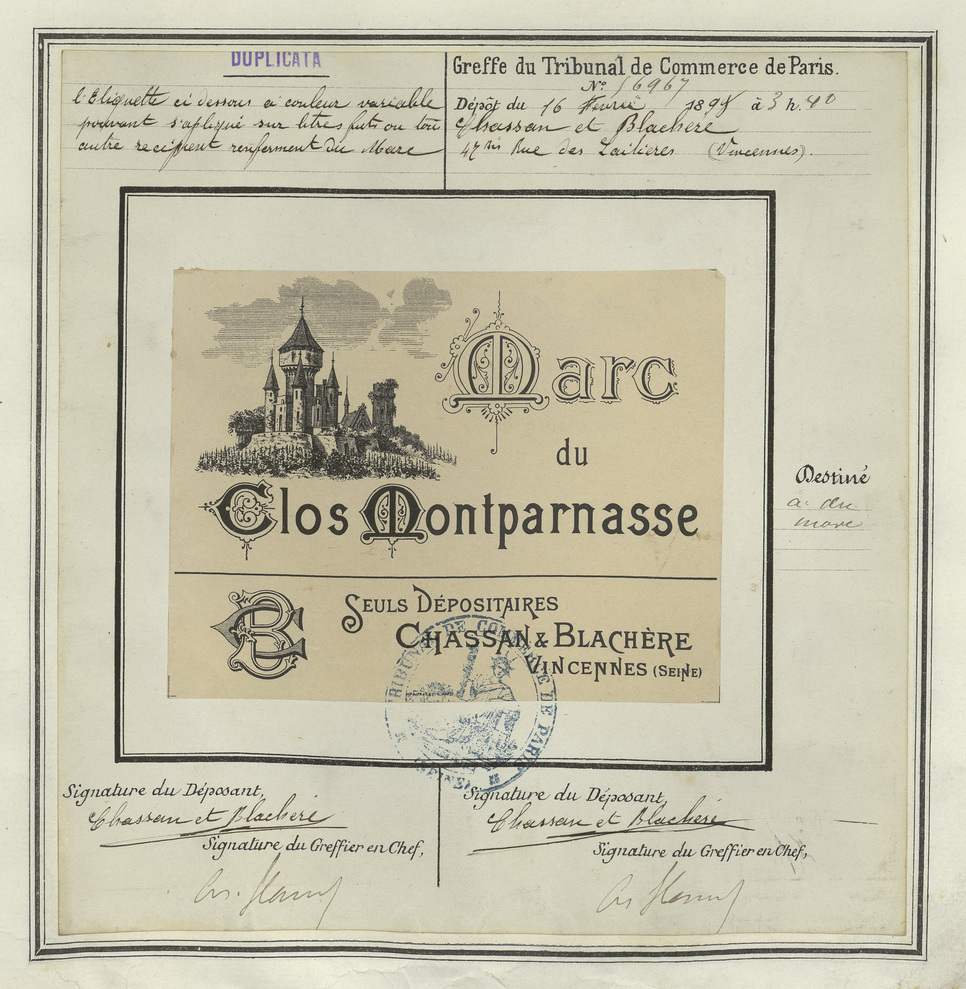 DUPLICATA
l'Etiquette ci dessous a couleur variable
pouvant s'apliqué sur litres futs ou tout
autre recipient renferment du Marc
Greffe du Tribunal de Commerce de Paris.
N° 56967
Dépôt du 16 Fevrier 189 à 3 h. 40
Chassan et Blachère
47 bis Rue des Laitieres (Vincennes).
Marc
du
Clos Montparnasse
CB
SEULS DÉPOSITAIRES
CHASSAN & BLACHÈRE
VINCENNES (SEINE)
TRIBUNAL DE COMMERCE DE PARIS
Destiné
a du
marc
Signature du Déposant,
Chassan et Blachère
Signature du Greffier en Chef,
Signature du Déposant,
Chassan et Blachère
Signature du Greffier en Chef,